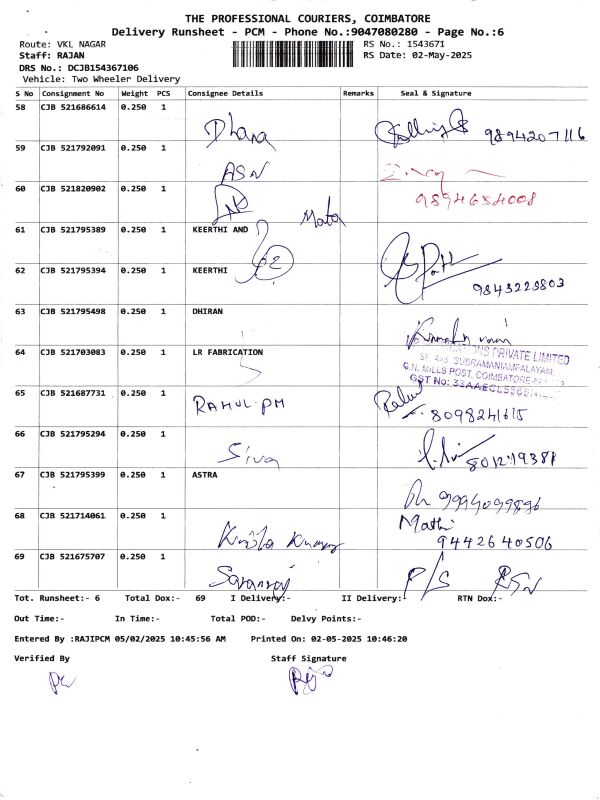 THE PROFESSIONAL COURIERS, COIMBATORE
Delivery Runsheet - PCM - Phone No.:9047080280 - Page No.:6
Route: VKL NAGAR RS No.: 1543671
Staff: RAJAN RS Date: 02-May-2025
DRS No.: DCJB154367106
Vehicle: Two Wheeler Delivery
S No Consignment No Weight PCS Consignee Details Remarks Seal & Signature
58 CJB 521686614 0.250 1
Dhana 9894207116
59 CJB 521792091 0.250 1
ASN
60 CJB 521820902 0.250 1
9894654008
Mata
61 CJB 521795389 0.250 1 KEERTHI AND
62 CJB 521795394 0.250 1 KEERTHI
9843229803
63 CJB 521795498 0.250 1 DHIRAN
64 CJB 521703083 0.250 1 LR FABRICATION
PRIVATE LIMITED
SUBRAMANIAMPALAYAM,
G.N. MILLS POST, COIMBATORE
GST No:
65 CJB 521687731 0.250 1
RAHUL.PM Rahul
8098241615
66 CJB 521795294 0.250 1
Siva
67 CJB 521795399 0.250 1 ASTRA
68 CJB 521714061 0.250 1
Mathi
9442640506
69 CJB 521675707 0.250 1
Saranraj P/S RTN
Tot. Runsheet:- 6 Total Dox:- 69 I Delivery:- II Delivery:- RTN Dox:-
Out Time:- In Time:- Total POD:- Delvy Points:-
Entered By :RAJIPCM 05/02/2025 10:45:56 AM Printed On: 02-05-2025 10:46:20
Verified By Staff Signature